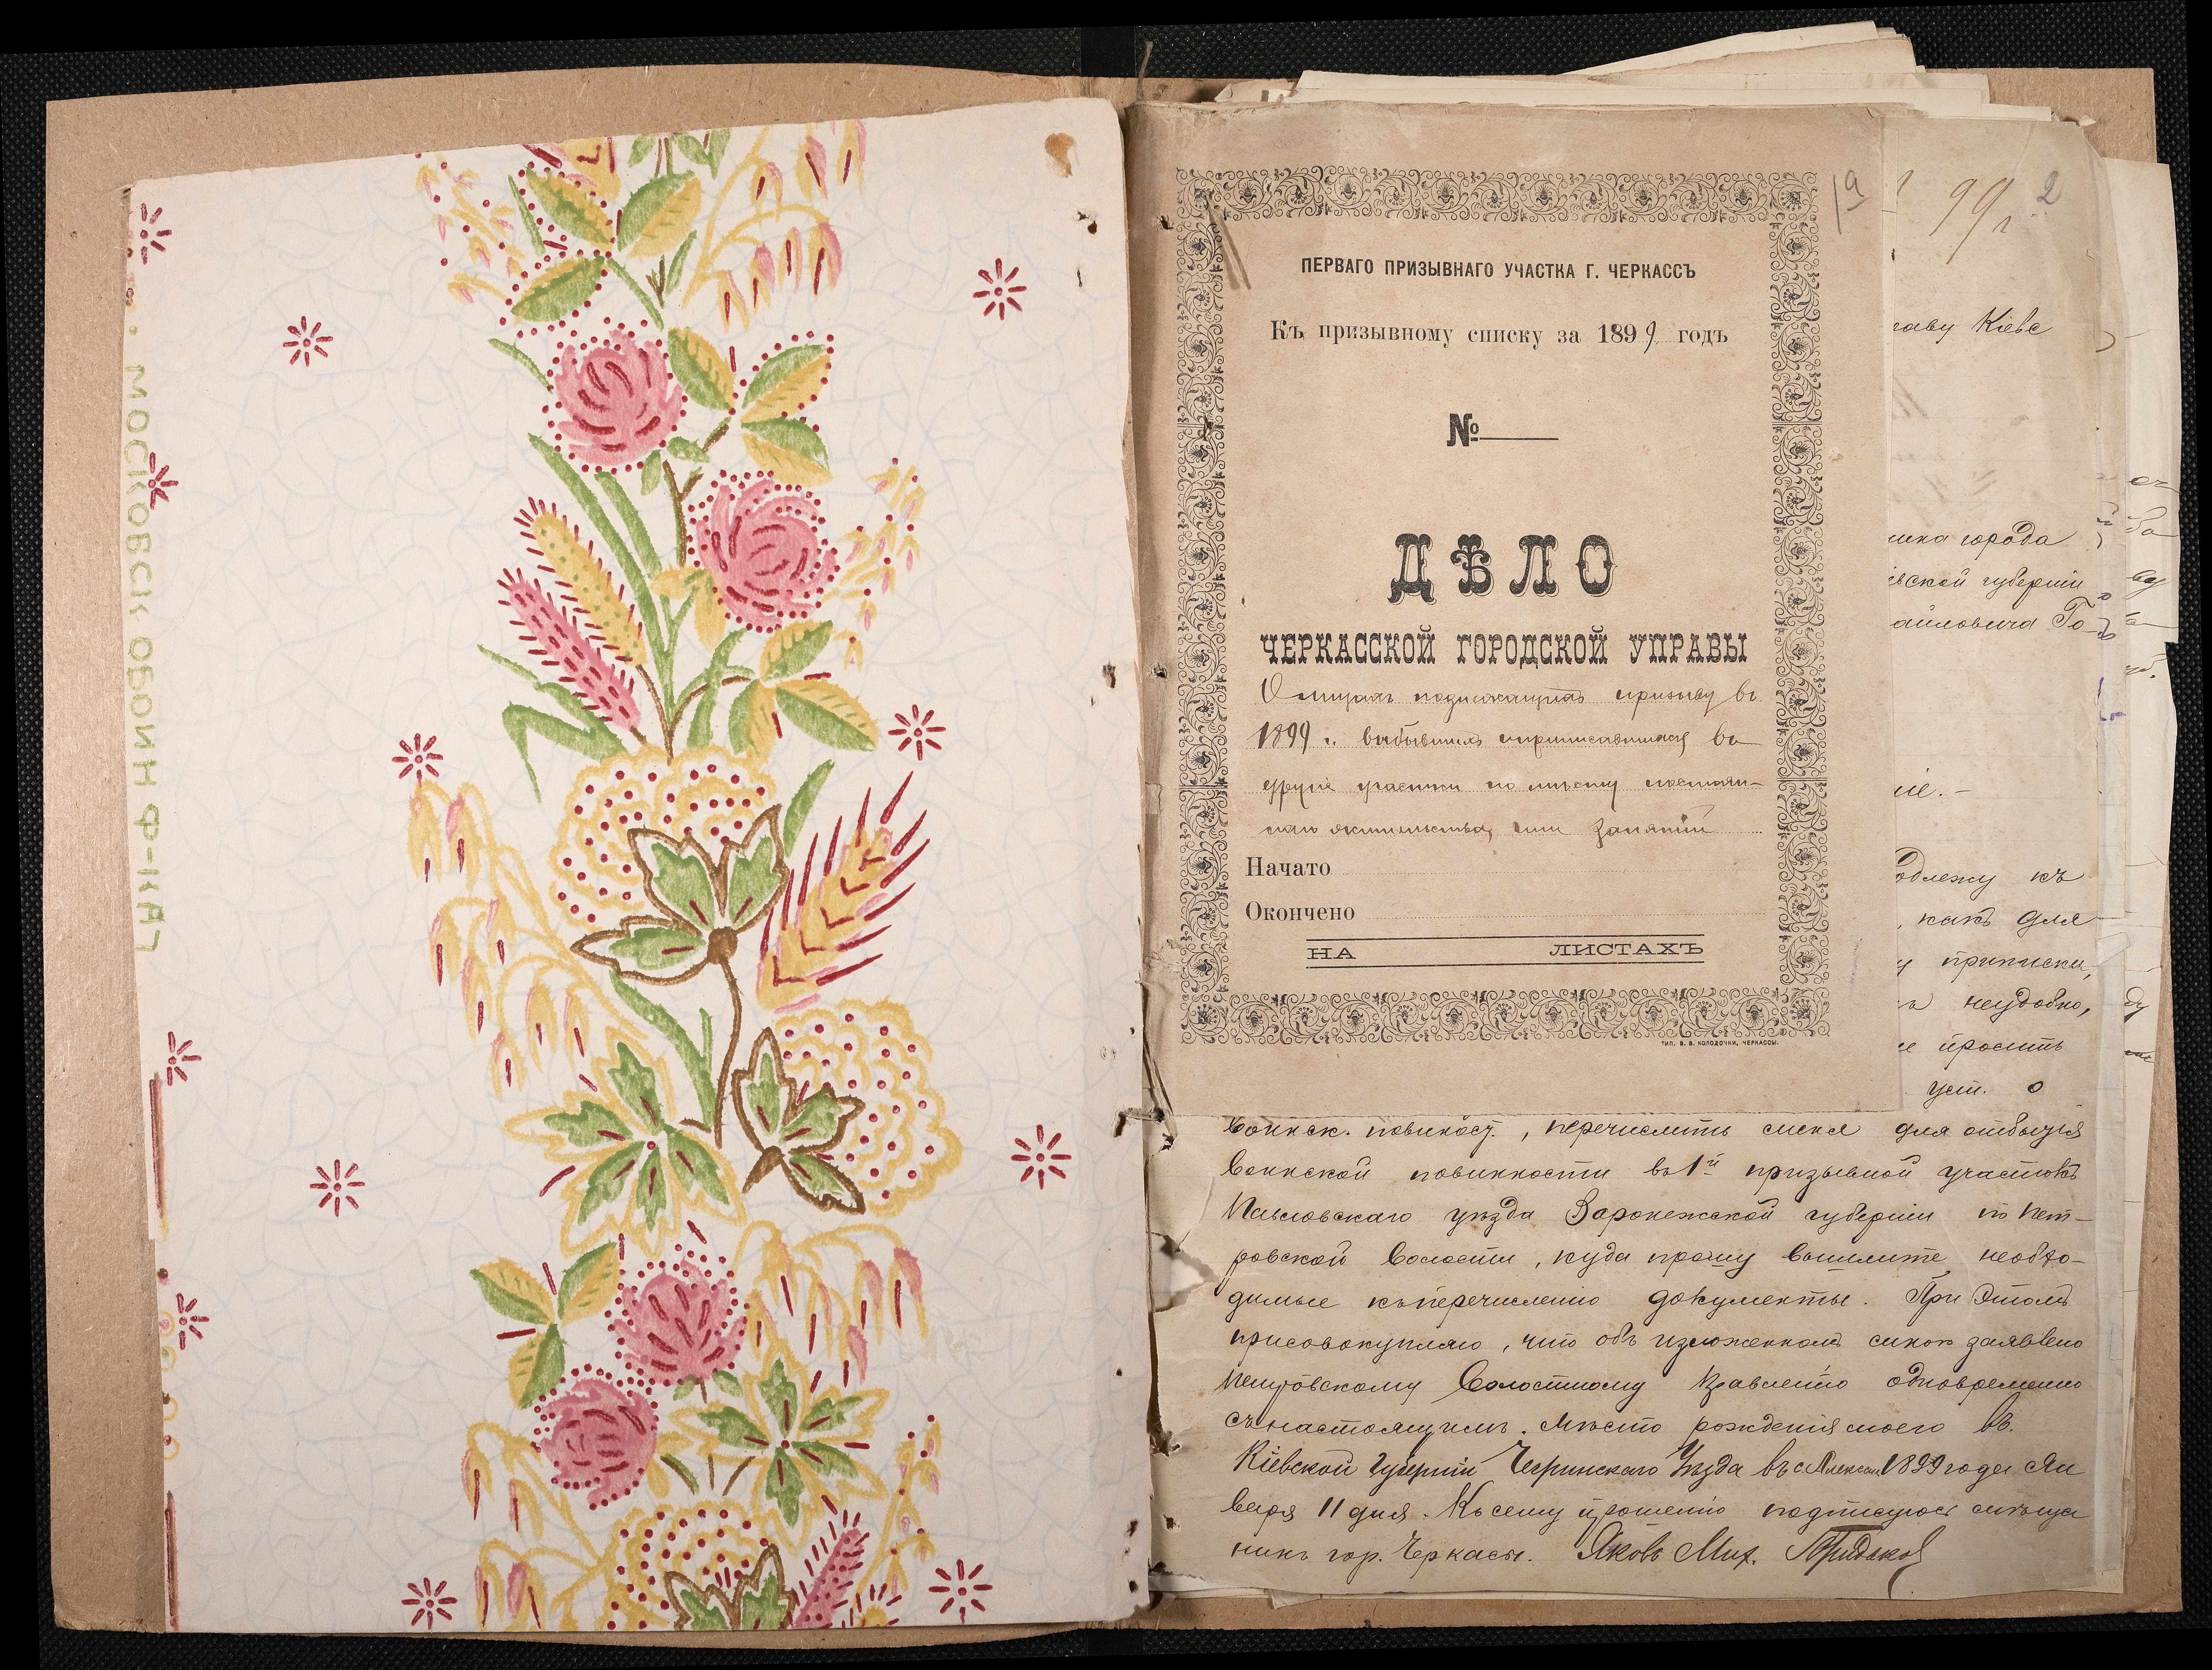 МОСКОВСК ОБОЙН Ф-КА
1а
ПЕРВАГО ПРИЗЫВНАГО УЧАСТКА Г. ЧЕРКАССЪ
Къ призывному списку за 1899 годъ
№
ДѢЛО
ЧЕРКАССКОЙ ГОРОДСКОЙ УПРАВЫ
О лицахъ подлежащихъ призыву въ
1899 г. выбывшихъ и приписавшихся въ
другіе участки по мѣсту постоян-
наго жительства, или занятій
Начато
Окончено
НА ЛИСТАХЪ
ТИП. В. В. КОЛОДОЧКИ, ЧЕРКАССЫ.
99 г. 2
раву Кіевс
города
евской губерніи
аиловича Го
ніе.-
одлежу къ
, какъ для
приписки,
неудобно,
просить
уст. о
воинск. повинност., перечислить меня для отбытія
воинской повинности въ 1й призывной участокъ
Павловскаго уѣзда Воронежской губерніи по Пет-
ровской волости, куда прошу вышлите необхо-
димые къ перечисленію документы. При этомъ
присовокупляю, что объ изложенномъ мною заявлено
Петровскому Волостному Правленію одновременно
съ настоящимъ. Мѣсто рожденія моего въ
Кіевской Губерніи Чегринскаго Уѣзда въ с. 1899 года Ян
варя 11 дня. Къ сему прошенію подписуюсь мѣща
нинъ гор. Черкасы. Яковъ Мих.